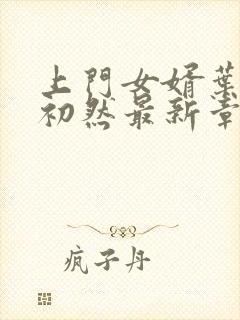 上門女婿葉
初然最新章
疯子丹